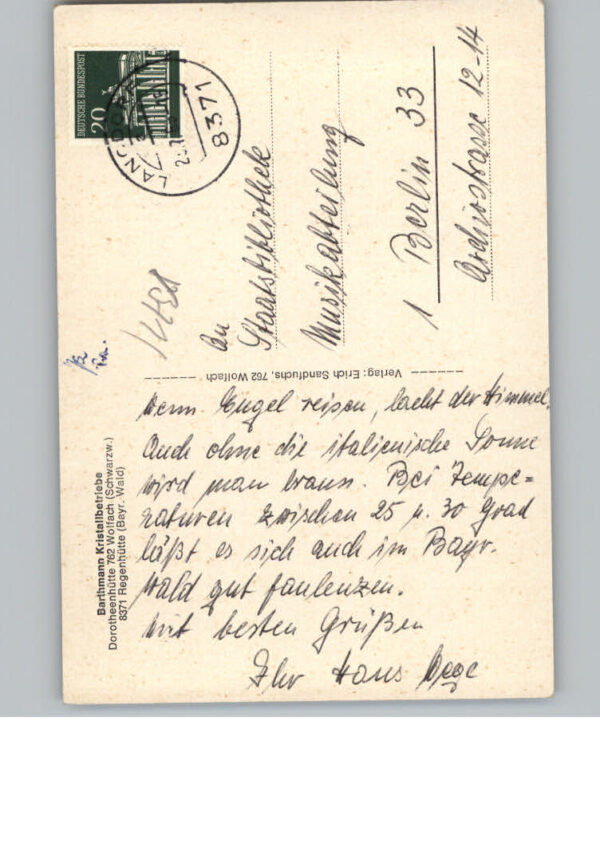 Barthmann Kristallbetriebe
Dorotheenhütte 762 Wolfach (Schwarzw.)
8371 Regenhütte (Bayr. Wald)
Wenn Engel reisen, lacht der Himmel.
Auch ohne die italienische Sonne
wird man braun. Bei Tempe=
raturen zwischen 25 u. 30 Grad
läßt es sich auch im Bayr.
Wald gut faulenzen.
Mit besten Grüßen
Ihr Hans Dege
Verlag: Erich Sandfuchs, 762 Wolfach
DEUTSCHE BUNDESPOST
20
LANGDORF
8371
An
Staatsbibliothek
Musikabteilung
1 Berlin 33
Archivstrasse 12-14